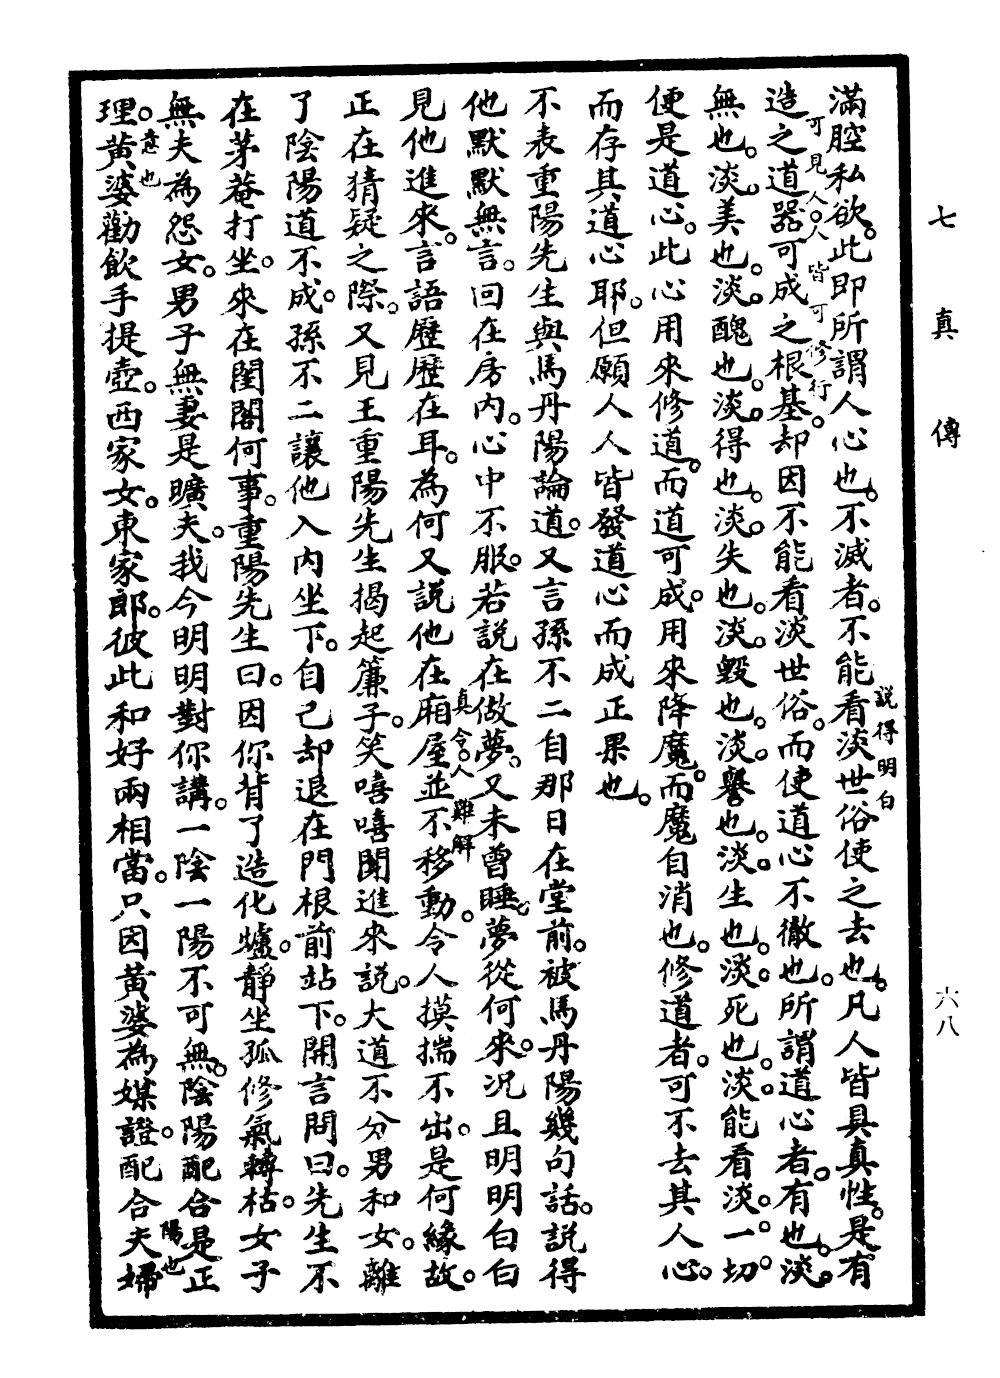 七真傳
六八
滿腔私欲。此即所謂人心也。不滅者。不能看淡世俗使之去也。凡人皆具真性。是有
說得明白
造之道器可成之根基。却因不能看淡世俗。而使道心不徹也。所謂道心者。有也。淡。
可見人。人皆可修行。
無也。淡。美也。淡。醜也。淡。得也。淡。失也。淡。毀也。淡。譽也。淡。生也。淡。死也。淡。能看淡。一切。
便是道心。此心用來修道。而道可成。用來降魔。而魔自消也。修道者。可不去其人心。
而存其道心耶。但願人人皆發道心而成正果也。
不表重陽先生與馬丹陽論道。又言孫不二自那日在堂前。被馬丹陽幾句話。說得
他默默無言。回在房內。心中不服。若說在做夢。又未曾睡。夢從何來。況且明明白白
真令人難解
見他進來。言語歷歷在耳。為何又說他在廂屋並不移動。令人摸揣不出。是何緣故。
正在猜疑之際。又見王重陽先生揭起簾子。笑嘻嘻聞進來說。大道不分男和女。離
了陰陽道不成。孫不二讓他入內坐下。自己却退在門根前站下。開言問曰。先生不
在茅菴打坐。來在閨閣何事。重陽先生曰。因你背了造化爐。靜坐孤修氣轉枯。女子
無夫為怨女。男子無妻是曠夫。我今明明對你講。一陰一陽不可無。陰陽配合是正
陽也
理。黃婆勸飲手提壺。西家女。東家郎。彼此和好兩相當。只因黃婆為媒證。配合夫婦
意也